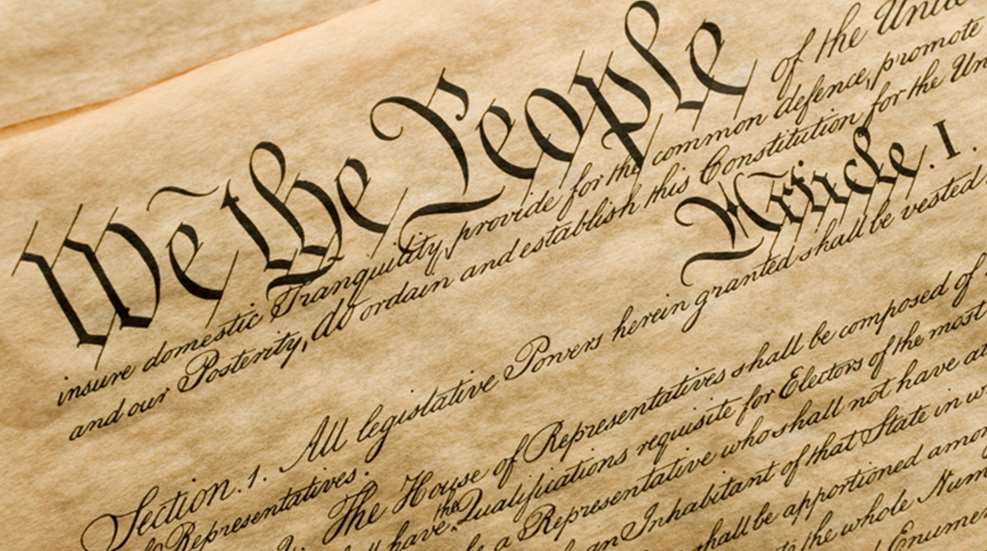 We the People of the Unite
insure domestic Tranquility, provide for the common defence, promote
and our Posterity, do ordain and establish this Constitution for the Un
Article. I.
Section. 1. All legislative Powers herein granted shall be vested
Representatives.
The House of Representatives shall be composed of
have the Qualifications requisite for Electors of the most
a Representative who shall not have
an Inhabitant of that State in
shall be apportioned amon
the whole Num
Enumer